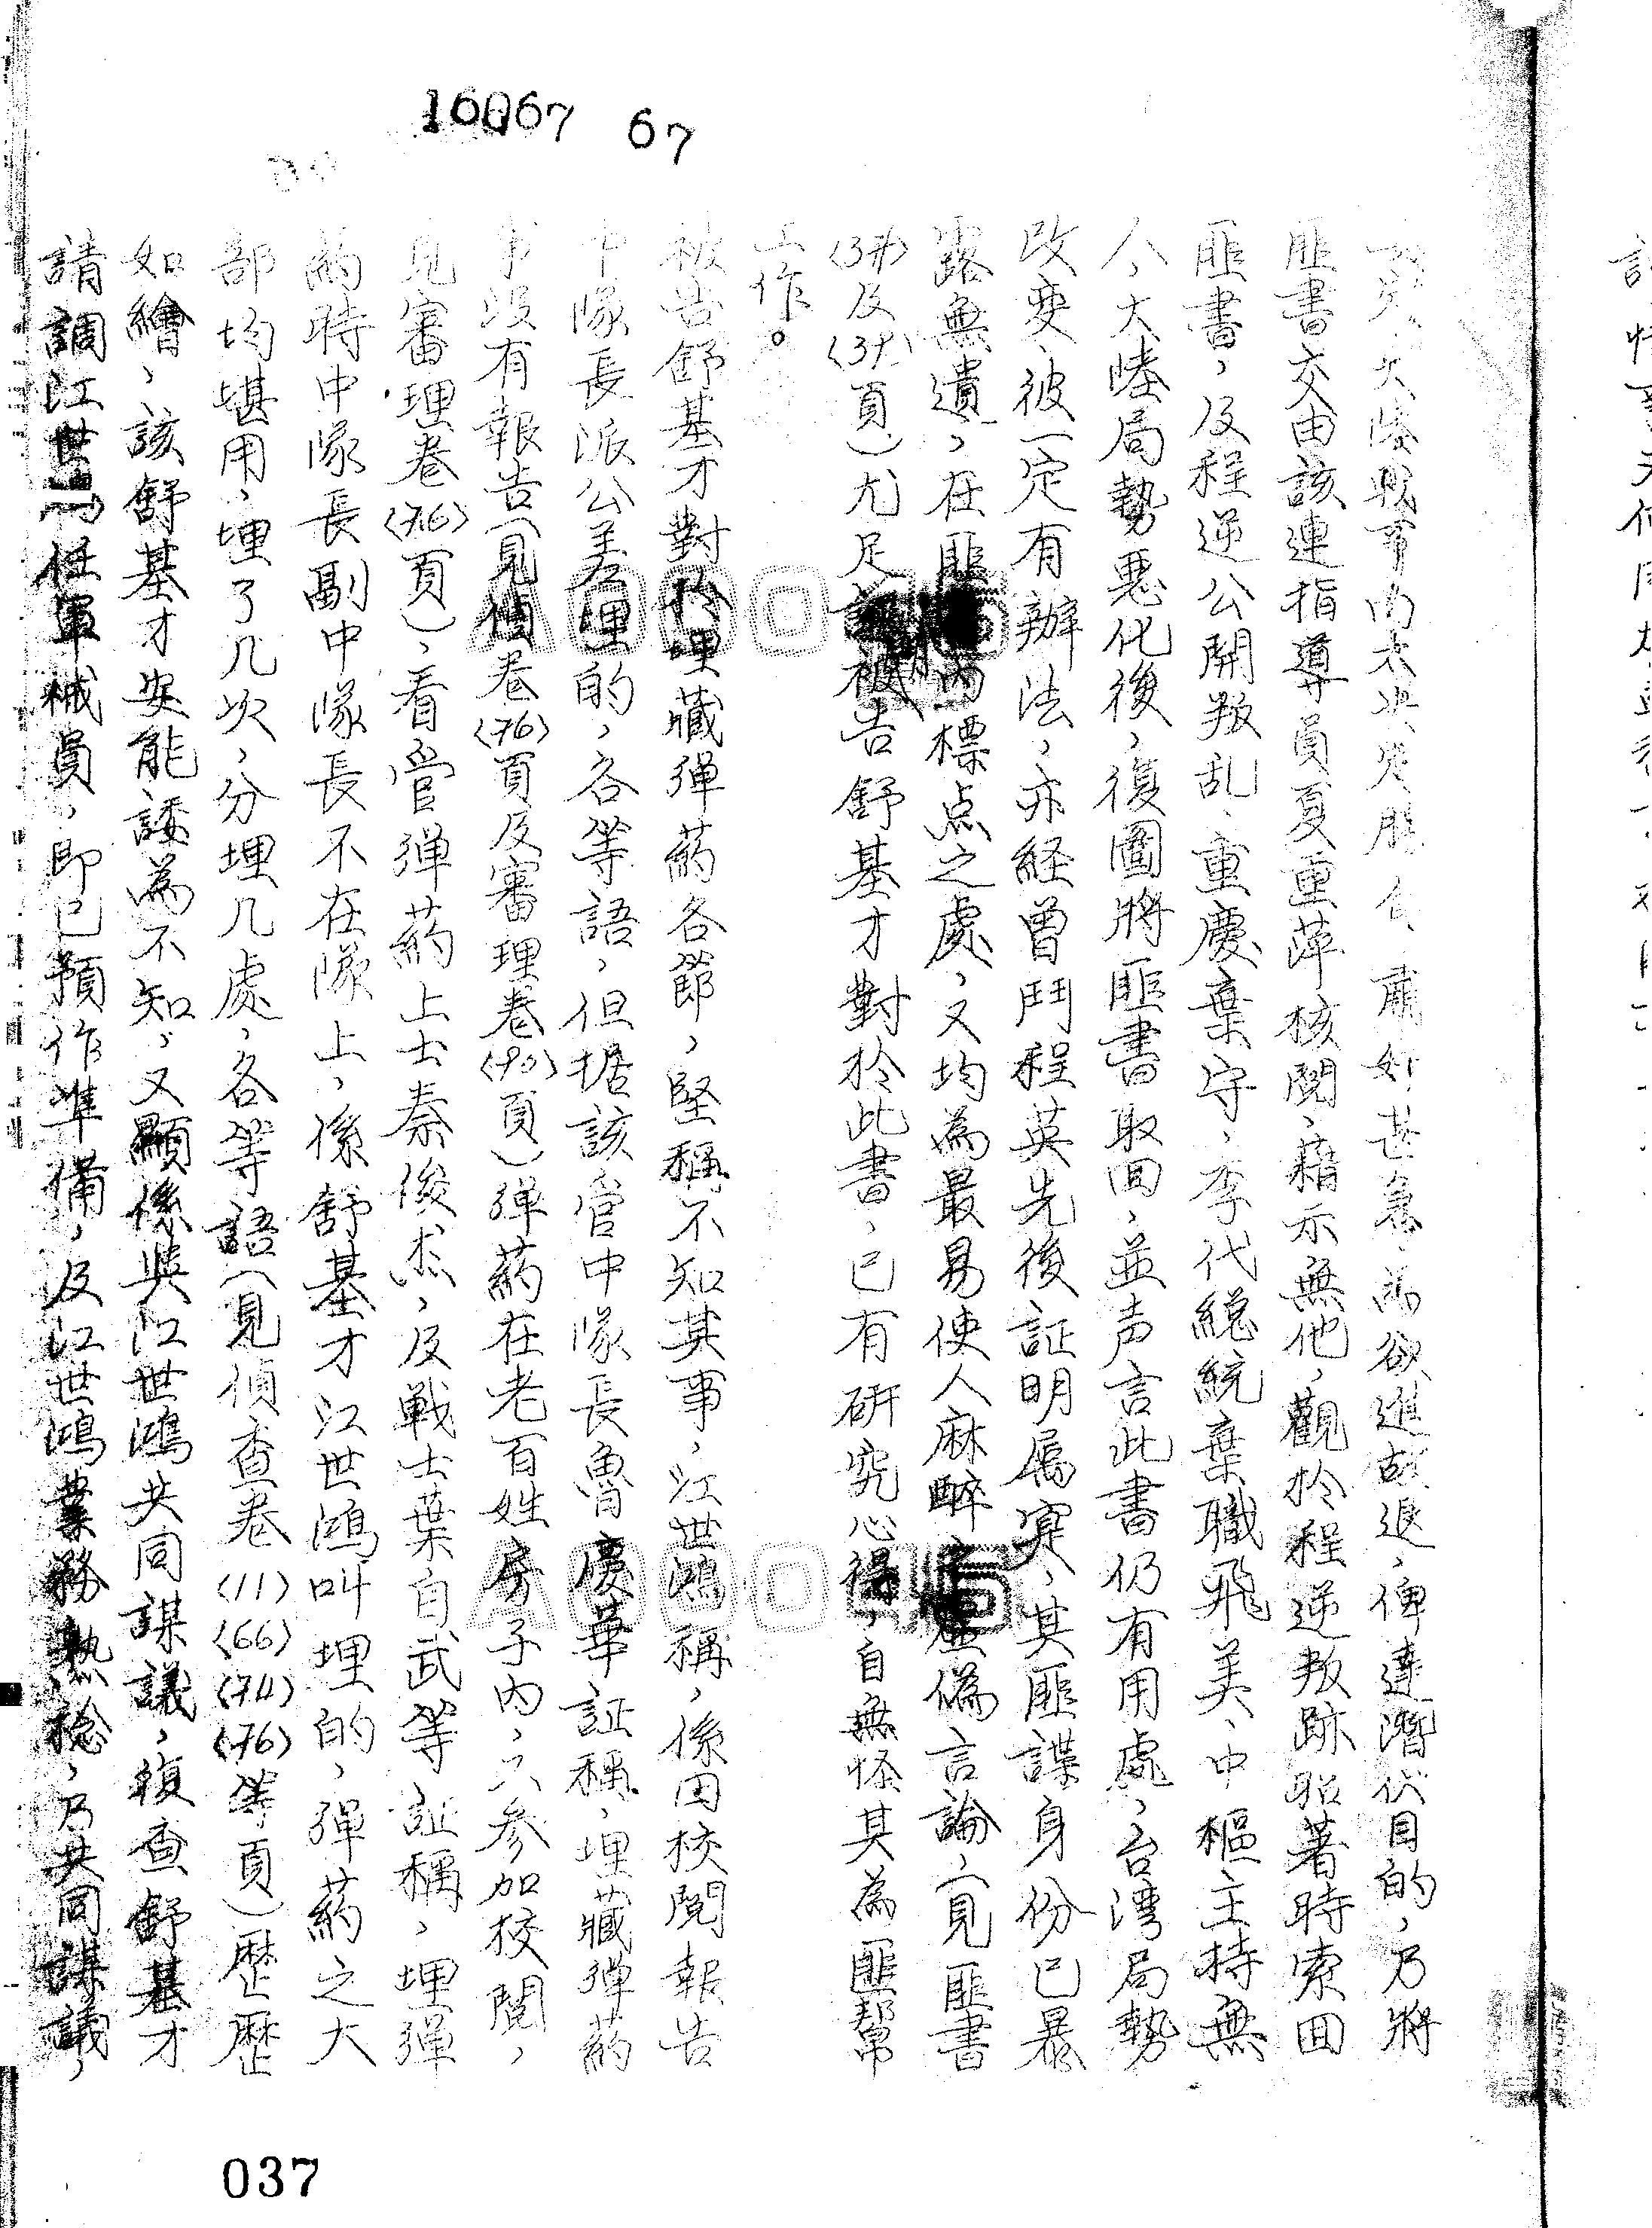 16067 67
大陸戰事尚未決定勝負、肅奸甚急、為欲進故退，俾達潛伏目的，乃將
匪書交由該連指導員夏重萍核閱，藉示無他，觀於程逆叛跡昭著時索回
匪書，及程逆公開叛乱、重慶棄守、李代總統棄職飛美、中樞主持無
人、大陸局勢惡化後，復圖將匪書取回，並声言此書仍有用處，台灣局勢
改变、彼一定有辦法，亦経曾鬥程英先後証明属寔，其匪諜身份已暴
露無遺，在匪書內標点之處，又均為最易使人麻醉之虛偽言論，(見匪書
(37)及(39)頁)尤足証明被告舒基才對於此書，已有研究心得，自無怪其為匪幫
工作。
被告舒基才對於埋藏彈葯各節，堅稱不知其事，江世鴻稱，係因校閱報告
中隊長派公差埋的，各等語，但據該管中隊長魯慶華証稱，埋藏彈葯
事没有報告(見偵卷(76)頁及審理卷(90)頁)弹葯在老百姓房子內，不参加校閱，
見審理卷(76)頁)，看管弹葯上士秦俊杰，及戰士葉自武等，証稱，埋彈
葯時中隊長副中隊長不在隊上，係舒基才江世鴻叫埋的，彈葯之大
部均堪用，埋了几次，分埋几處，各等語(見偵查卷(11)(66)(74)(76)等頁)歷歷
如繪，該舒基才安能諉為不知，又顯係與江世鴻共同謀議，復查舒基才
請調江世鴻任軍械員，即已預作準備，及江世鴻業務熟稔，乃共同謀議，
037